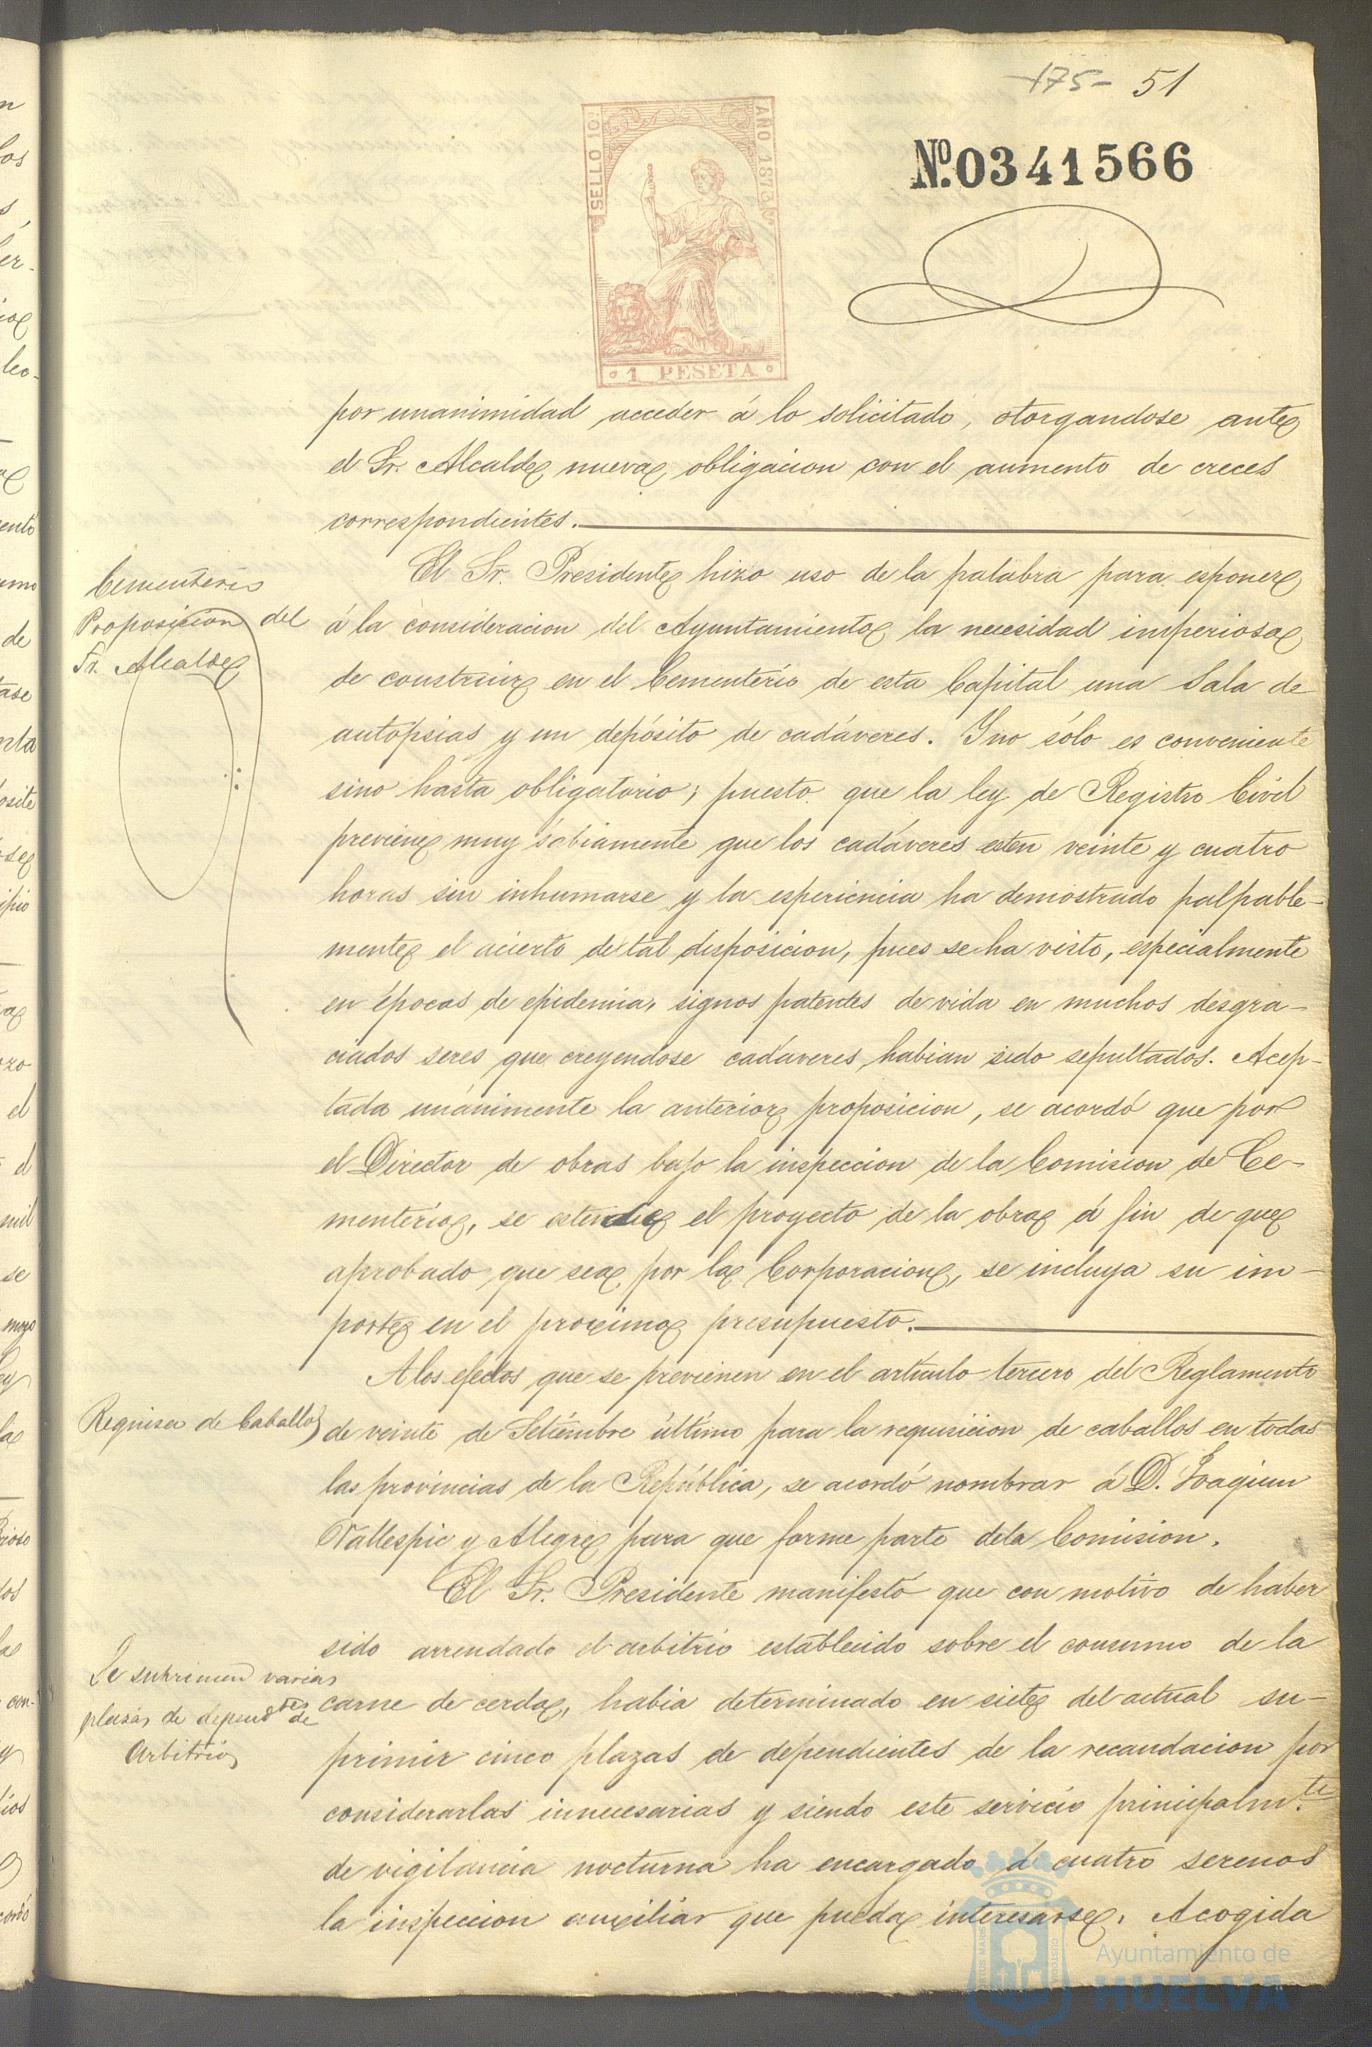 175- 51
SELLO 10º
AÑO 1873
Nº 0341566
1 PESETA
por unanimidad acceder á lo solicitado, otorgandose ante
el Sr. Alcalde nueva obligacion con el aumento de creces
correspondientes.
Cementerio
Proposicion del
Sr. Alcalde
El Sr. Presidente hizo uso de la palabra para esponer
á la consideracion del Ayuntamiento la necesidad imperiosa
de construir en el Cementerio de esta Capital una Sala de
autópsias y un depósito de cadáveres. Y no sólo es conveniente
sino hasta obligatorio, puesto que la ley de Registro Civil
previene muy sábiamente que los cadáveres esten veinte y cuatro
horas sin inhumarse y la esperiencia ha demostrado palpable-
mente el acierto de tal disposicion, pues se ha visto, especialmente
en épocas de epidemia, signos patentes de vida en muchos desgra-
ciados seres que creyendose cadáveres, habian sido sepultados. Acep-
tada unánimente la anterior proposicion, se acordó que por
el Director de obras bajo la inspeccion de la Comision de Ce-
menterio, se estendie el proyecto de la obra á fin de que
aprobado que sea por la Corporacion, se incluya su im-
porte en el proximo presupuesto.
Requisa de Caballos
A los efectos que se previenen en el artículo tercero del Reglamento
de veinte de Setiembre último para la requisicion de caballos en todas
las provincias de la República, se acordó nombrar á D. Joaquin
Vallespic y Alegre para que forme parte de la Comision.
Se suprimen varias
plazas de depend.tes de
Arbitrios
El Sr. Presidente manifestó que con motivo de haber
sido arrendado el arbitrio establecido sobre el consumo de la
carne de cerda, habia determinado en siete del actual su-
primir cinco plazas de dependientes de la recaudacion por
considerarlas innecesarias y siendo este servicio principalm.te
de vigilancia nocturna ha encargado á cuatro serenos
la inspeccion auxiliar que pueda interesarse. Acogida
Ayuntamiento de
HUELVA